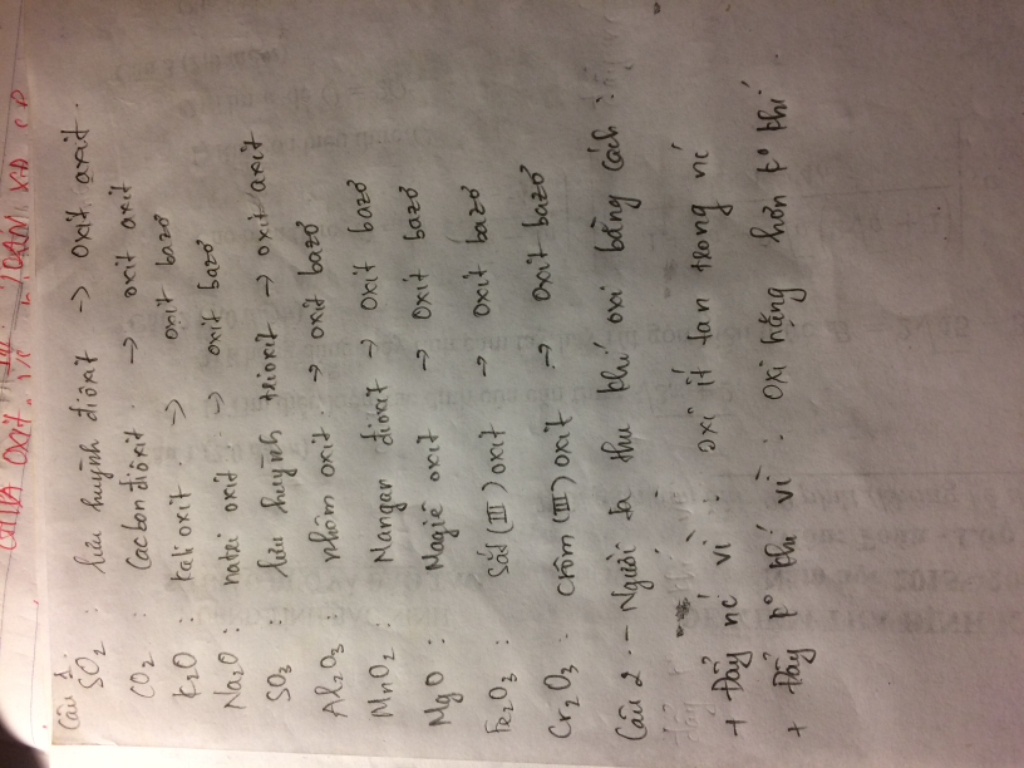 Câu 1:
SO2 : lưu huỳnh đioxit -> oxit axit
CO2 : Cacbon đioxit -> oxit axit
K2O : kali oxit -> oxit bazơ
Na2O : natri oxit -> oxit bazơ
SO3 : lưu huỳnh trioxit -> oxit axit
Al2O3 : nhôm oxit -> oxit bazơ
MnO2 : Mangan đioxit -> oxit bazơ
MgO : Magiê oxit -> oxit bazơ
Fe2O3 : Sắt (III) oxit -> oxit bazơ
Cr2O3 : crôm (III) oxit -> oxit bazơ
Câu 2 - Người ta thu khí oxi bằng cách :
+ Đẩy nc vì : oxi ít tan trong nc
+ Đẩy k² khí vì : oxi nặng hơn k² khí